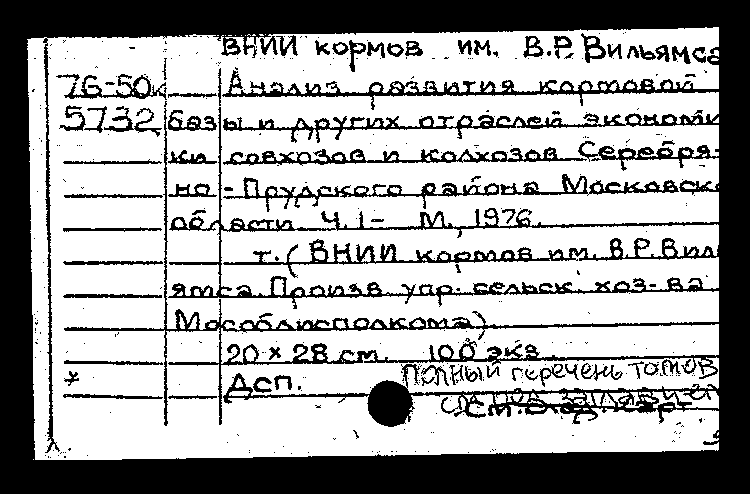 ВНИИ кормов им. В.Р. Вильямса
76-50к Анализ развития кормовой
5732 базы и других отраслей экономи
ки совхозов и колхозов Серебря-
но-Прудского района Московско
области. Ч. I- М., 1976.
т. (ВНИИ кормов им. В.Р. Вил
ямса. Произв. упр. сельск. хоз-ва
Мособлисполкома).
20 × 28 см. 100 экз.
* Дсп. Полный перечень томов
См.